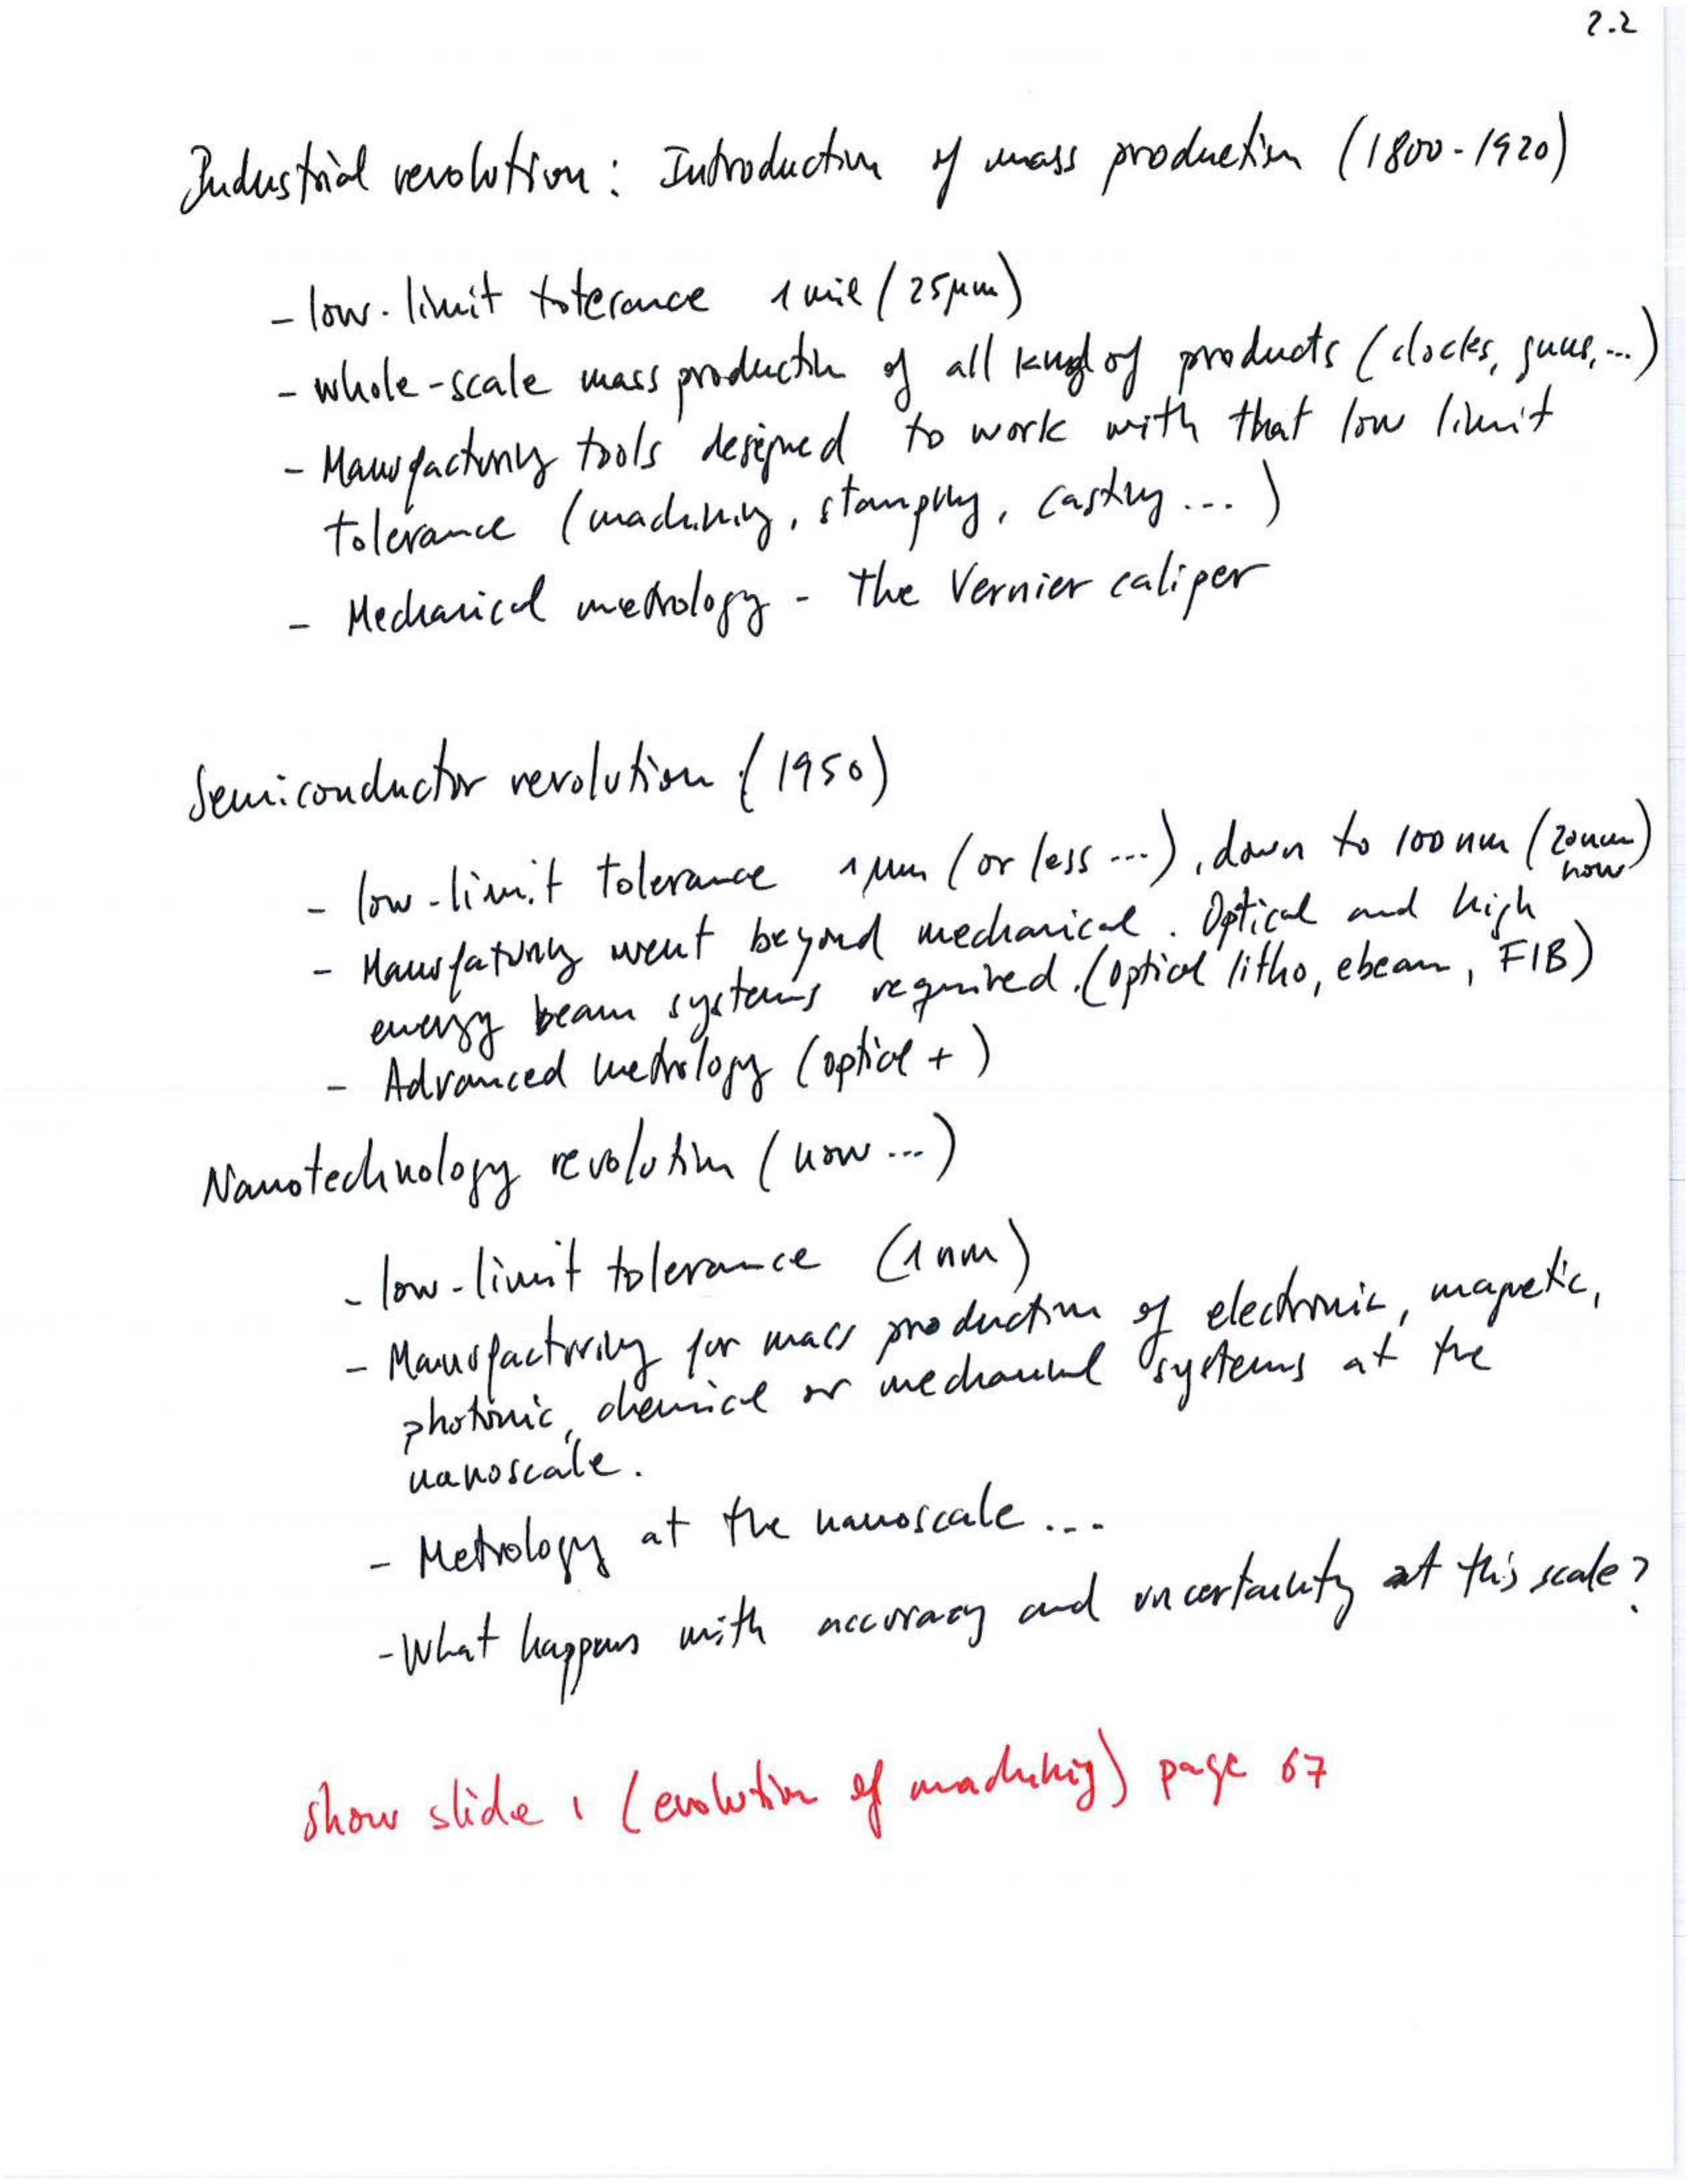 2.2
Industrial revolution: Introduction of mass production (1800-1920)
- low-limit tolerance 1 mil (25µm)
- whole-scale mass production of all kind of products (clocks, guns, ...)
- Manufacturing tools designed to work with that low limit
tolerance (machining, stamping, casting ... )
- Mechanical metrology - the Vernier caliper
Semiconductor revolution (1950)
- low-limit tolerance 1µm (or less ...), down to 100 nm (20nm)
now
- Manufaturing went beyond mechanical. Optical and high
energy beam systems required. (optical litho, ebeam, FIB)
- Advanced metrology (optical + )
Nanotechnology revolution (now ...)
- low-limit tolerance (1 nm)
- Manufacturing for mass production of electronic, magnetic,
photonic, chemical or mechanical systems at the
nanoscale.
- Metrology at the nanoscale ...
- What happens with accuracy and uncertainty at this scale?
show slide 1 (evolution of machining) page 67